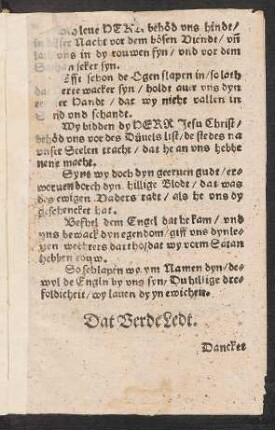 leue HERE behöd vns hinde/
Nacht vor dem bösen Viende/ vñ
vns in dy rouwen syn/ vnd vor dem
seker syn.
Efft schon de Ogen slapen in/ so loth
wacker syn/ holdt auer vns dyn
Handt/ dat wy nicht vallen in
vnd schandt.
Wy bidden dy HERR Jesu Christ/
behöd vns vor des Düuels list/ de stedes na
vnser Seelen tracht/ dat he an vns hebbe
nene macht.
Synt wy doch dyn geeruen gudt/ er-
woruen dorch dyn hillige Blodt/ dat was
des ewigen Vaders radt/ als he vns dy
geschencket hat.
Befhel dem Engel dat he kam/ vnd
vns bewack dyn egendom/ giff vns dyn leu
en wechters dat
wy vorm Satan
hebben rouw.
So schlapen wy ym Namen dyn/ de-
wyl de Engln by vns syn/ Du hillige dre-
foldicheit/ wy lauen dy yn ewicheit.
Dat Verde Ledt.
Dancket